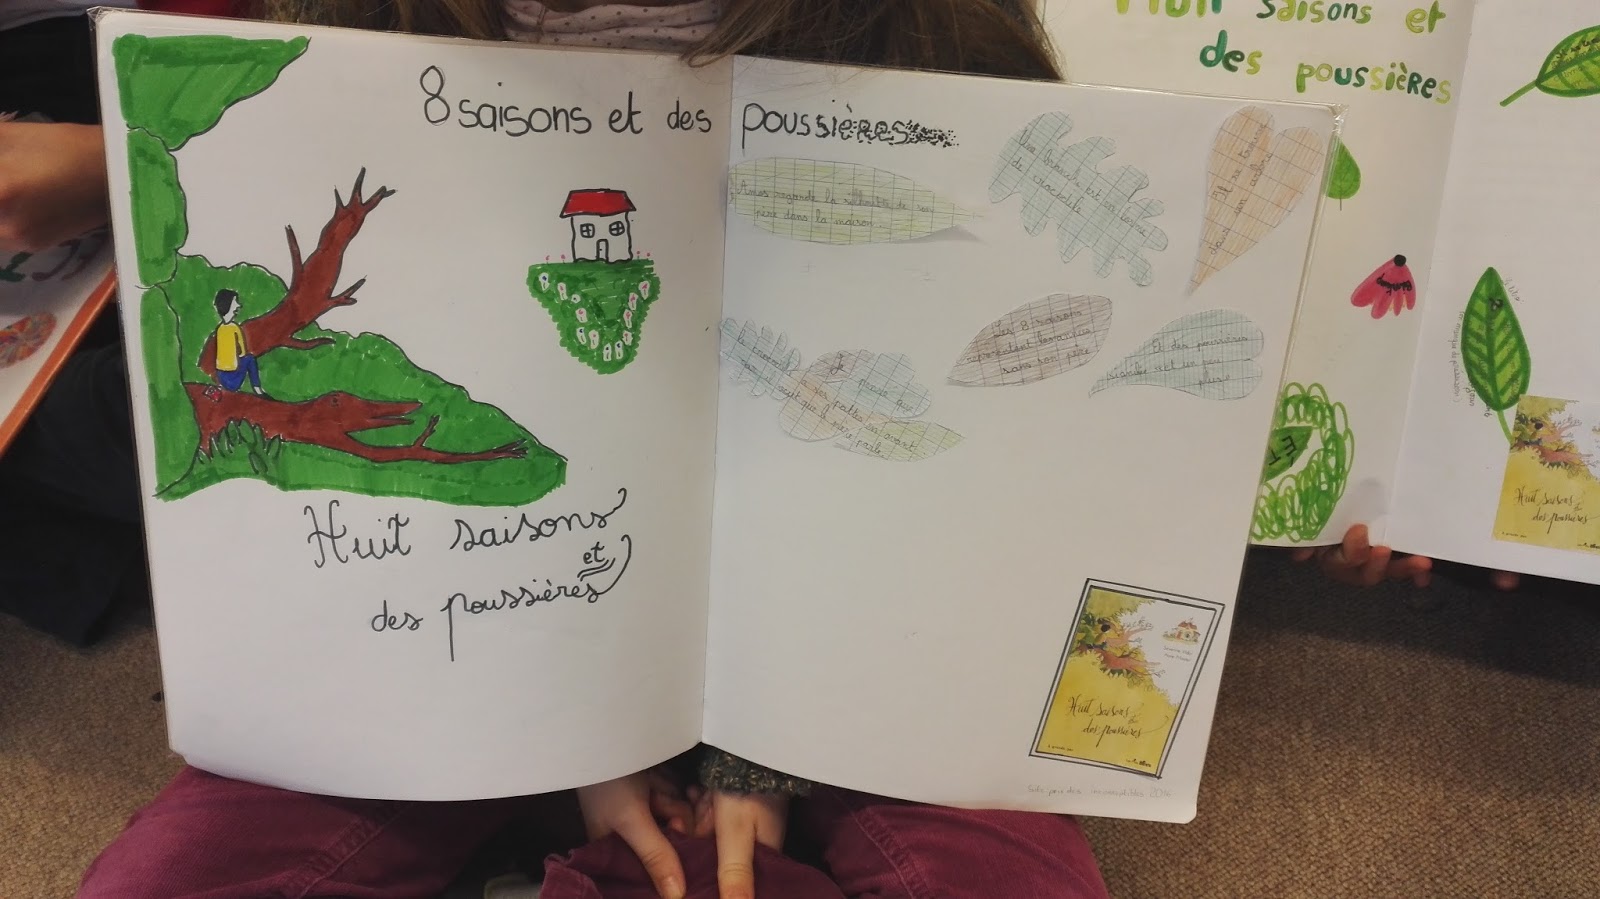 8 saisons et des poussières
Huit saisons
et
des poussières
Amos regarde la silhouette de son
père dans la maison.
Une branche est en forme
de crocodile
Il se trouve
dans un arbre
Les 8 saisons
représentent les années
sans son père
Et des poussières
signifie c'est un peu
plus
Je pense que
le crocodile a ses pattes en avant
la mère parle
Huit saisons
et
des poussières
Huit saisons et
des poussières
Huit saisons
des poussières